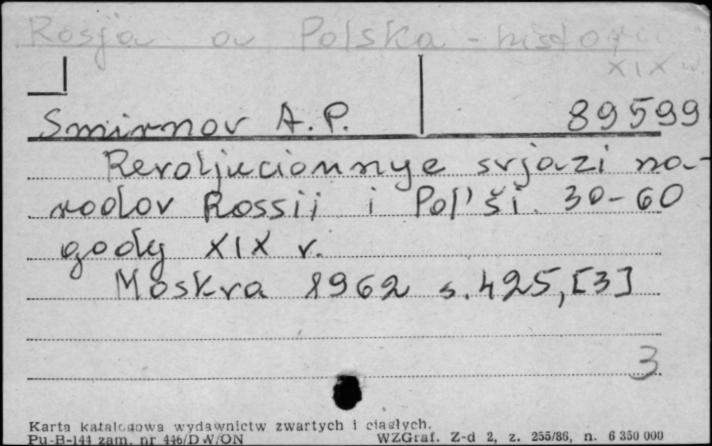 Rosja a Polska - historia
XIX w.
Smirnov A.P. 89599
Revoljucionnye svjazi na-
rodov Rossii i Pol'ši. 30-60
gody XIX v.
Moskva 1962 s. 425, [3]
3
Karta katalogowa wydawnictw zwartych i ciągłych.
Pu-B-144 zam. nr 446/DW/ON WZGraf. Z-d 2, z. 255/86, n. 6 350 000